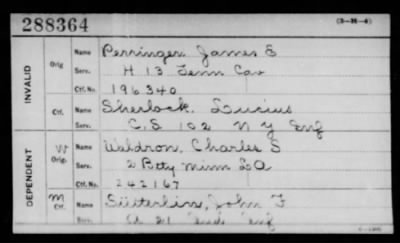 288364 (3-M-4)
INVALID
Orig Name Perringer James E
Serv. H 13 Tenn Cav
Ctf. No. 196340
Ctf. Name Sherlock, Lucius
Serv. C, E 102 N Y Inf
DEPENDENT
W Orig. Name Waldron, Charles S
Serv. 2 Btty Minn L A
Ctf. No. 242167
M Ctf. Name Sütterlin, John F
Serv. 21 Inf